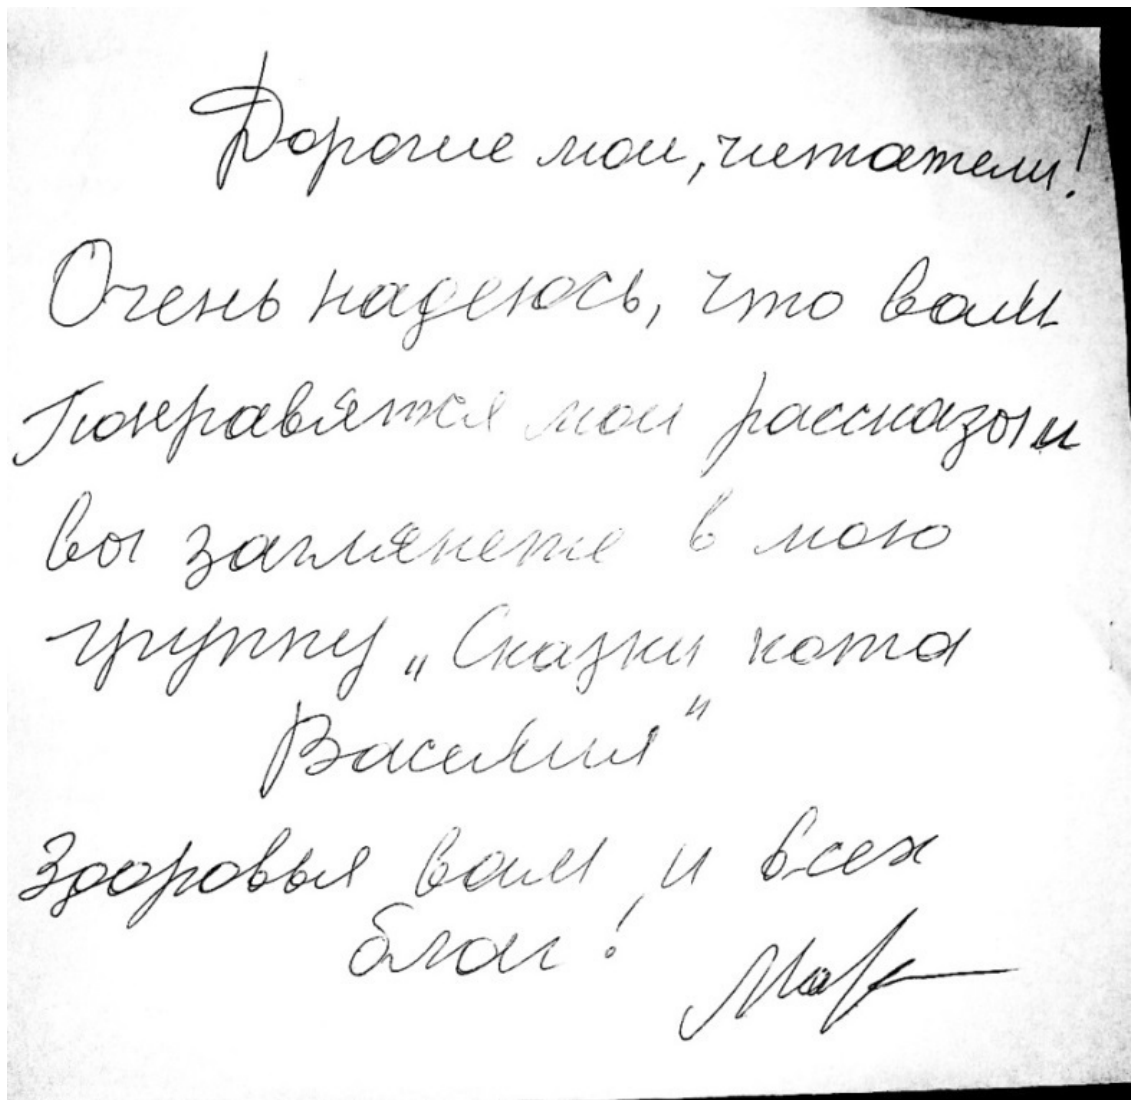 Дорогие мои, читатели!
Очень надеюсь, что вам
понравятся мои рассказы и
вы заглянете в мою
группу „Сказки кота
Василия"
Здоровья вам и всех
благ!